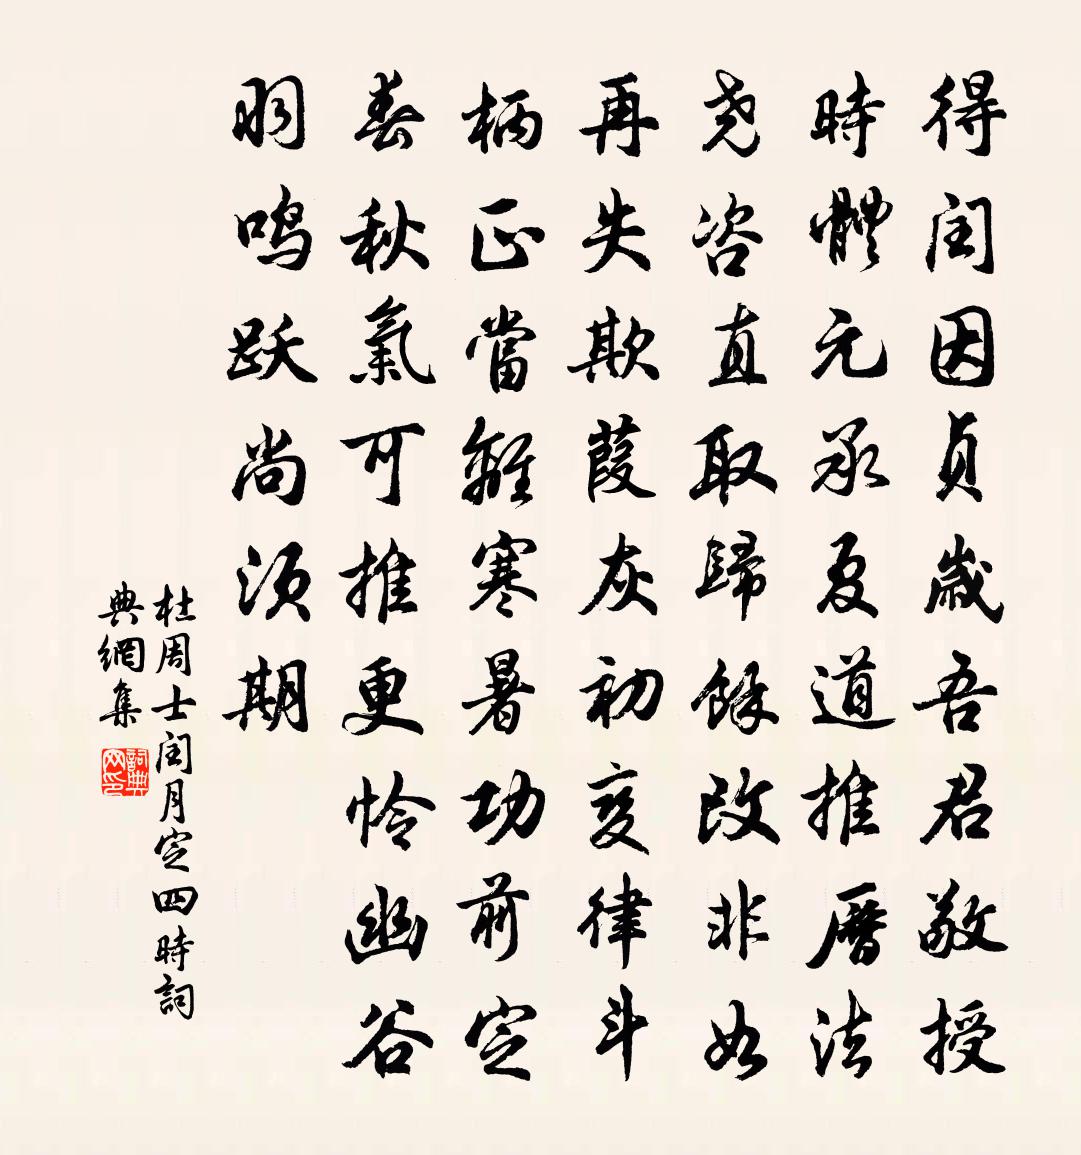 得閏因貞歲吾君敬授
時體元承夏道推曆法
堯咨直取歸餘改非如
再失欺葭灰初變律斗
柄正當離寒暑功前定
春秋氣可推更憐幽谷
羽鳴躍尚須期
杜周士閏月定四時詞
典網集
詞典
网印